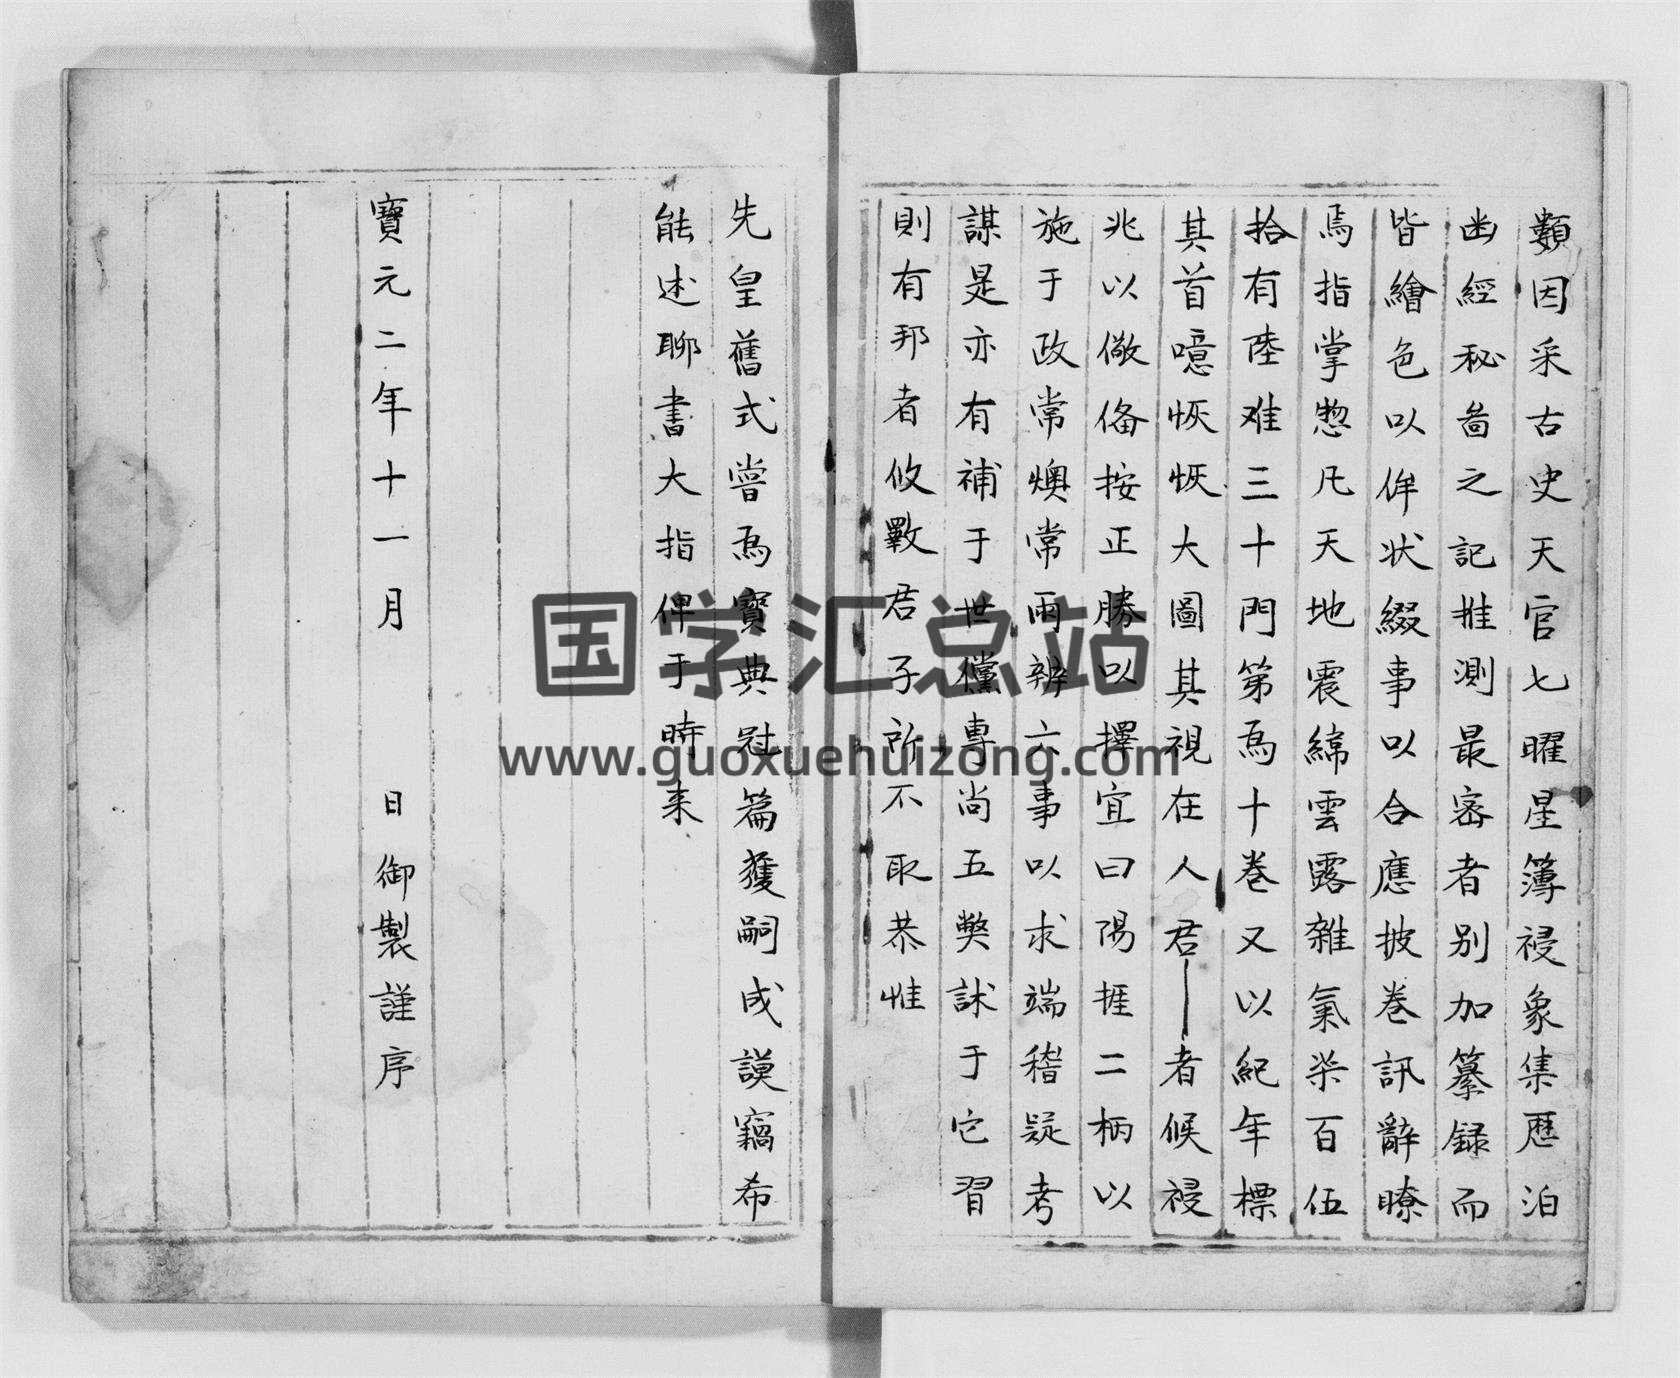 類因采古史天官七曜星簿祲象集歷泊
幽經秘啚之記推測最密者別加纂録而
皆繪色以侔状綴事以合應披巻訊辭瞭
焉指掌惣凡天地震緯雲露雜氣柒百伍
拾有陸难三十門第為十巻又以紀年標
其首噫恢恢大圖其視在人君者候祲
兆以儆俻按正勝以擇宜曰陽推二柄以
施于政常燠常雨辨六事以求端稽疑考
謀是亦有補于世儻專尚五獘訹于它習
則有邦者攸斁君子所不取恭惟
先皇舊式嘗為寶典冠篇獲嗣成謨竊希
能述聊書大指俾于時来
寶元二年十一月 日御製謹序
国学汇总站
www.guoxuehuizong.com